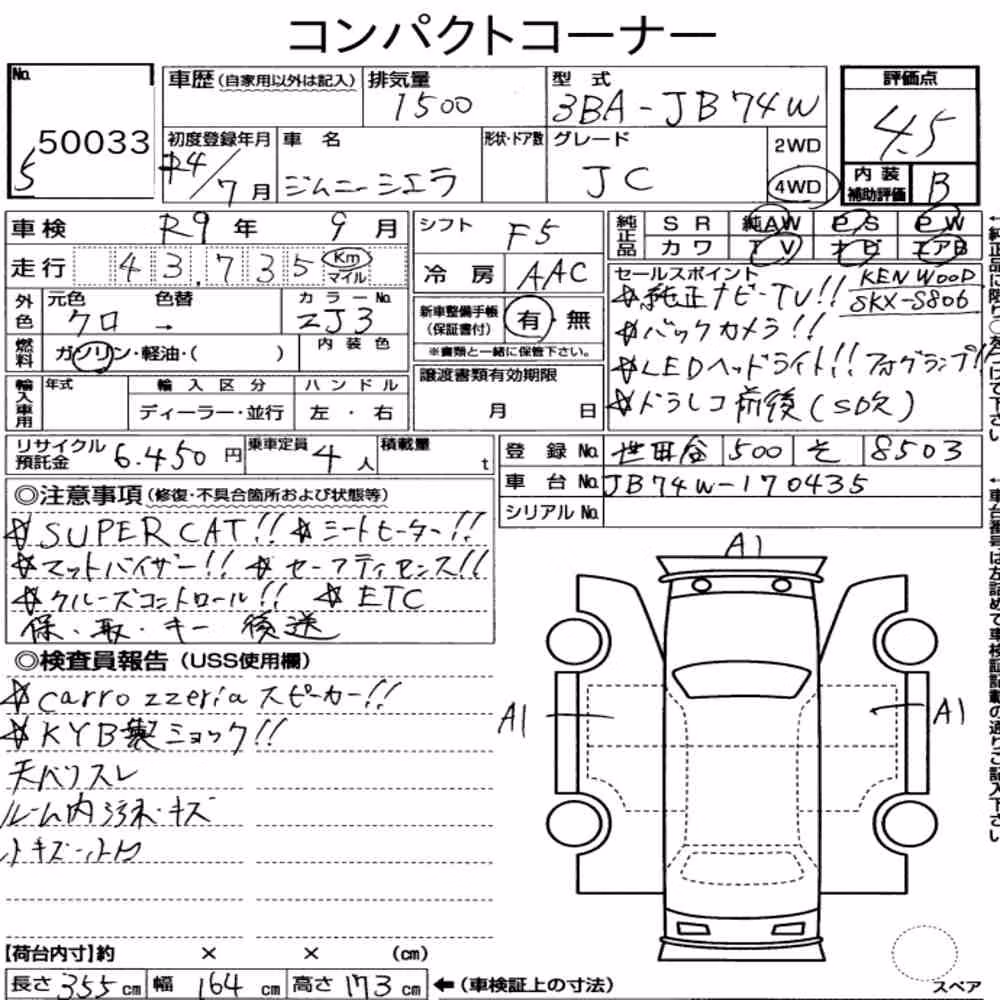 コンパクトコーナー
No. 50033
5
車歴 (自家用以外は記入) 排気量 1500 型式 3BA-JB74W
評価点 4.5
初度登録年月 R4/7月 車名 ジムニーシエラ 形状・ドア数 グレード JC 2WD 4WD
内装補助評価 B
車検 R9年 9月
シフト F5
純正品 SR 純AW PS PW
カワ TV ナビ エアB
走行 43,735 Km マイル
冷房 AAC
外色 元色 クロ 色替 → カラーNo. ZJ3
燃料 ガソリン・軽油・( ) 内装色
新車整備手帳(保証書付) 有 無
※書類と一緒に保管下さい。
譲渡書類有効期限
月 日
輸入車用 年式 輸入区分 ハンドル
ディーラー・並行 左・右
セールスポイント
☆純正ナビ-TV!! KENWOOD SKX-S806
☆バックカメラ!!
☆LEDヘッドライト!! フォグランプ!!
☆ドラレコ前後(SD欠)
リサイクル預託金 6.450円 乗車定員 4人 積載量 t
登録No. 世田谷 500 そ 8503
車台No. JB74W-170435
シリアルNo.
◎注意事項 (修復・不具合箇所および状態等)
☆SUPER CAT!! ☆シートヒーター!!
☆マットバイザー!! ☆セーフティセンス!!
☆クルーズコントロール!! ☆ETC
保・取・キー 後送
◎検査員報告 (USS使用欄)
☆carrozzeriaスピーカー!!
☆KYB製ショック!!
天バリスレ
ルーム内汚れ・キズ
小キズ・小凹
A1
A1
A1
【荷台内寸】約 × × (cm)
長さ 355cm 幅 164cm 高さ 173cm ←(車検証上の寸法)
スペア
←純正品に限り○をつけて下さい
←車台番号は左詰めで車検証記載の通りご記入下さい